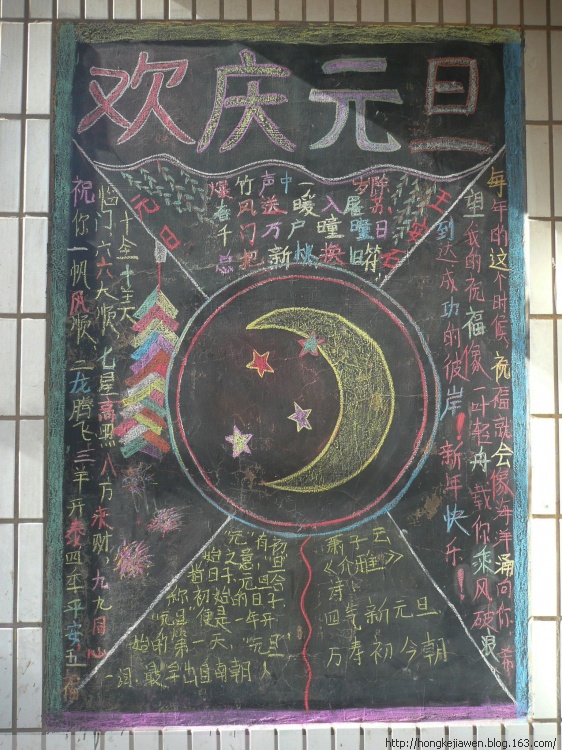 欢庆元旦
元日
王安石
爆竹声中一岁除,
春风送暖入屠苏。
千门万户曈曈日
总把新桃换旧符。
祝你一帆风顺,二龙腾飞,三羊开泰,四季平安,五福
临门,六六大顺,七星高照,八方来财,九九同心
十全十美。
每年的这个时候,祝福就会像海洋涌向你,希
望我的祝福像一叶轻舟载你乘风破浪
到达成功的彼岸!新年快乐!
始的第一天,"元旦"
一词,最早出自南朝人
萧子云
《介雅》
诗
四气新元旦
万寿初今朝
http://hongkejiawen.blog.163.com/